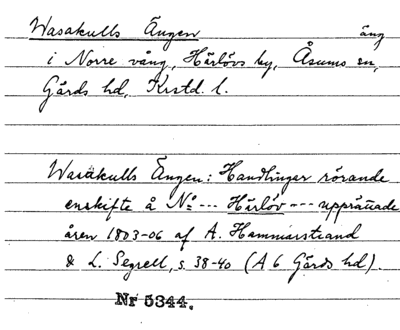 Wasakulls Ängen äng
i Norre vång, Härlövs by, Åsums sn,
Gärds hd, Krstd. l.
Wasäkulls Ängen: Handlingar rörande
enskifte å No --- Härlöv --- upprättade
åren 1803-06 af A. Hammarstrand
& L. Segrell, s. 38-40 (A 6 Gärds hd).
Nr 5344.